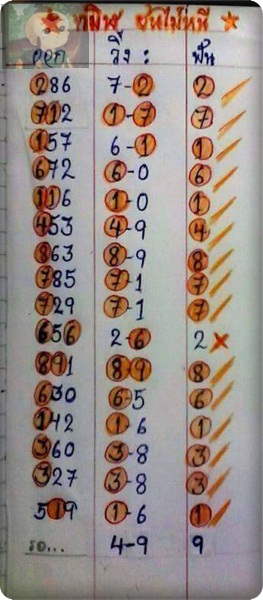 ทมิฬ ยันไม่หนี
ออก วิ่ง : ฟัน
286 7-2 2
712 1-7 7
157 6-1 1
672 6-0 6
116 1-0 1
453 4-9 4
863 8-9 8
785 7-1 7
729 7-1 7
656 2-6 2 ×
891 8-9 8
630 6-5 6
142 1-6 1
360 3-8 3
327 3-8 3
519 1-6 1
รอ... 4-9 9